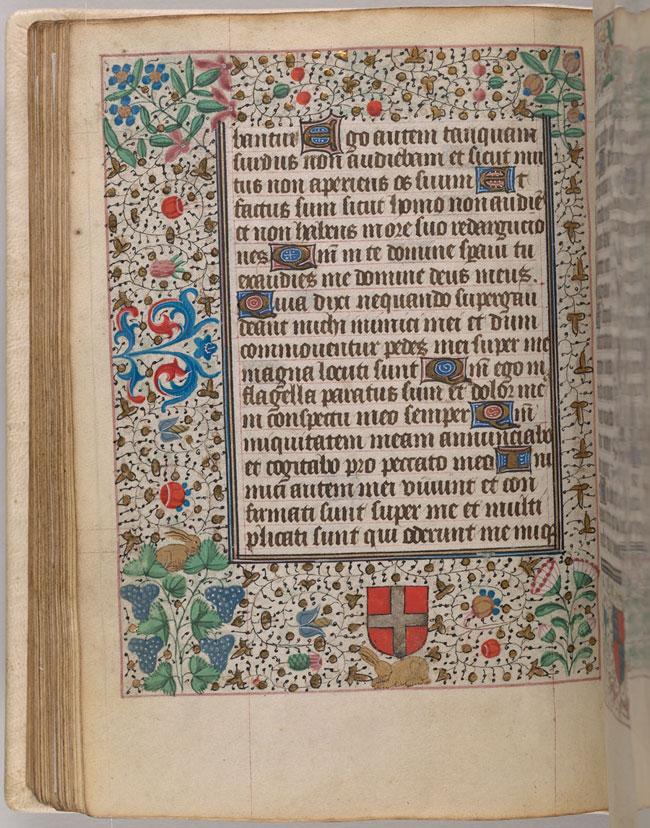 bantur Ego autem tanquam
surdus non audiebam et sicut mu
tus non aperiens os suum Et
factus sum sicut homo non audiē
et non habens in ore suo redargucio
nes Qm̄ in te domine speraui tu
exaudies me domine deus meus
Quia dixi nequando supergau
deant michi inimici mei et dum
commouentur pedes mei super me
magna locuti sunt Qm̄ ego in
flagella paratus sum et dolor me
in conspectu meo semper Qm̄
iniquitatem meam annunciabo
et cogitabo pro peccato meo Ini
mici autem mei viuunt et con
firmati sunt super me et multi
plicati sunt qui oderunt me iniq